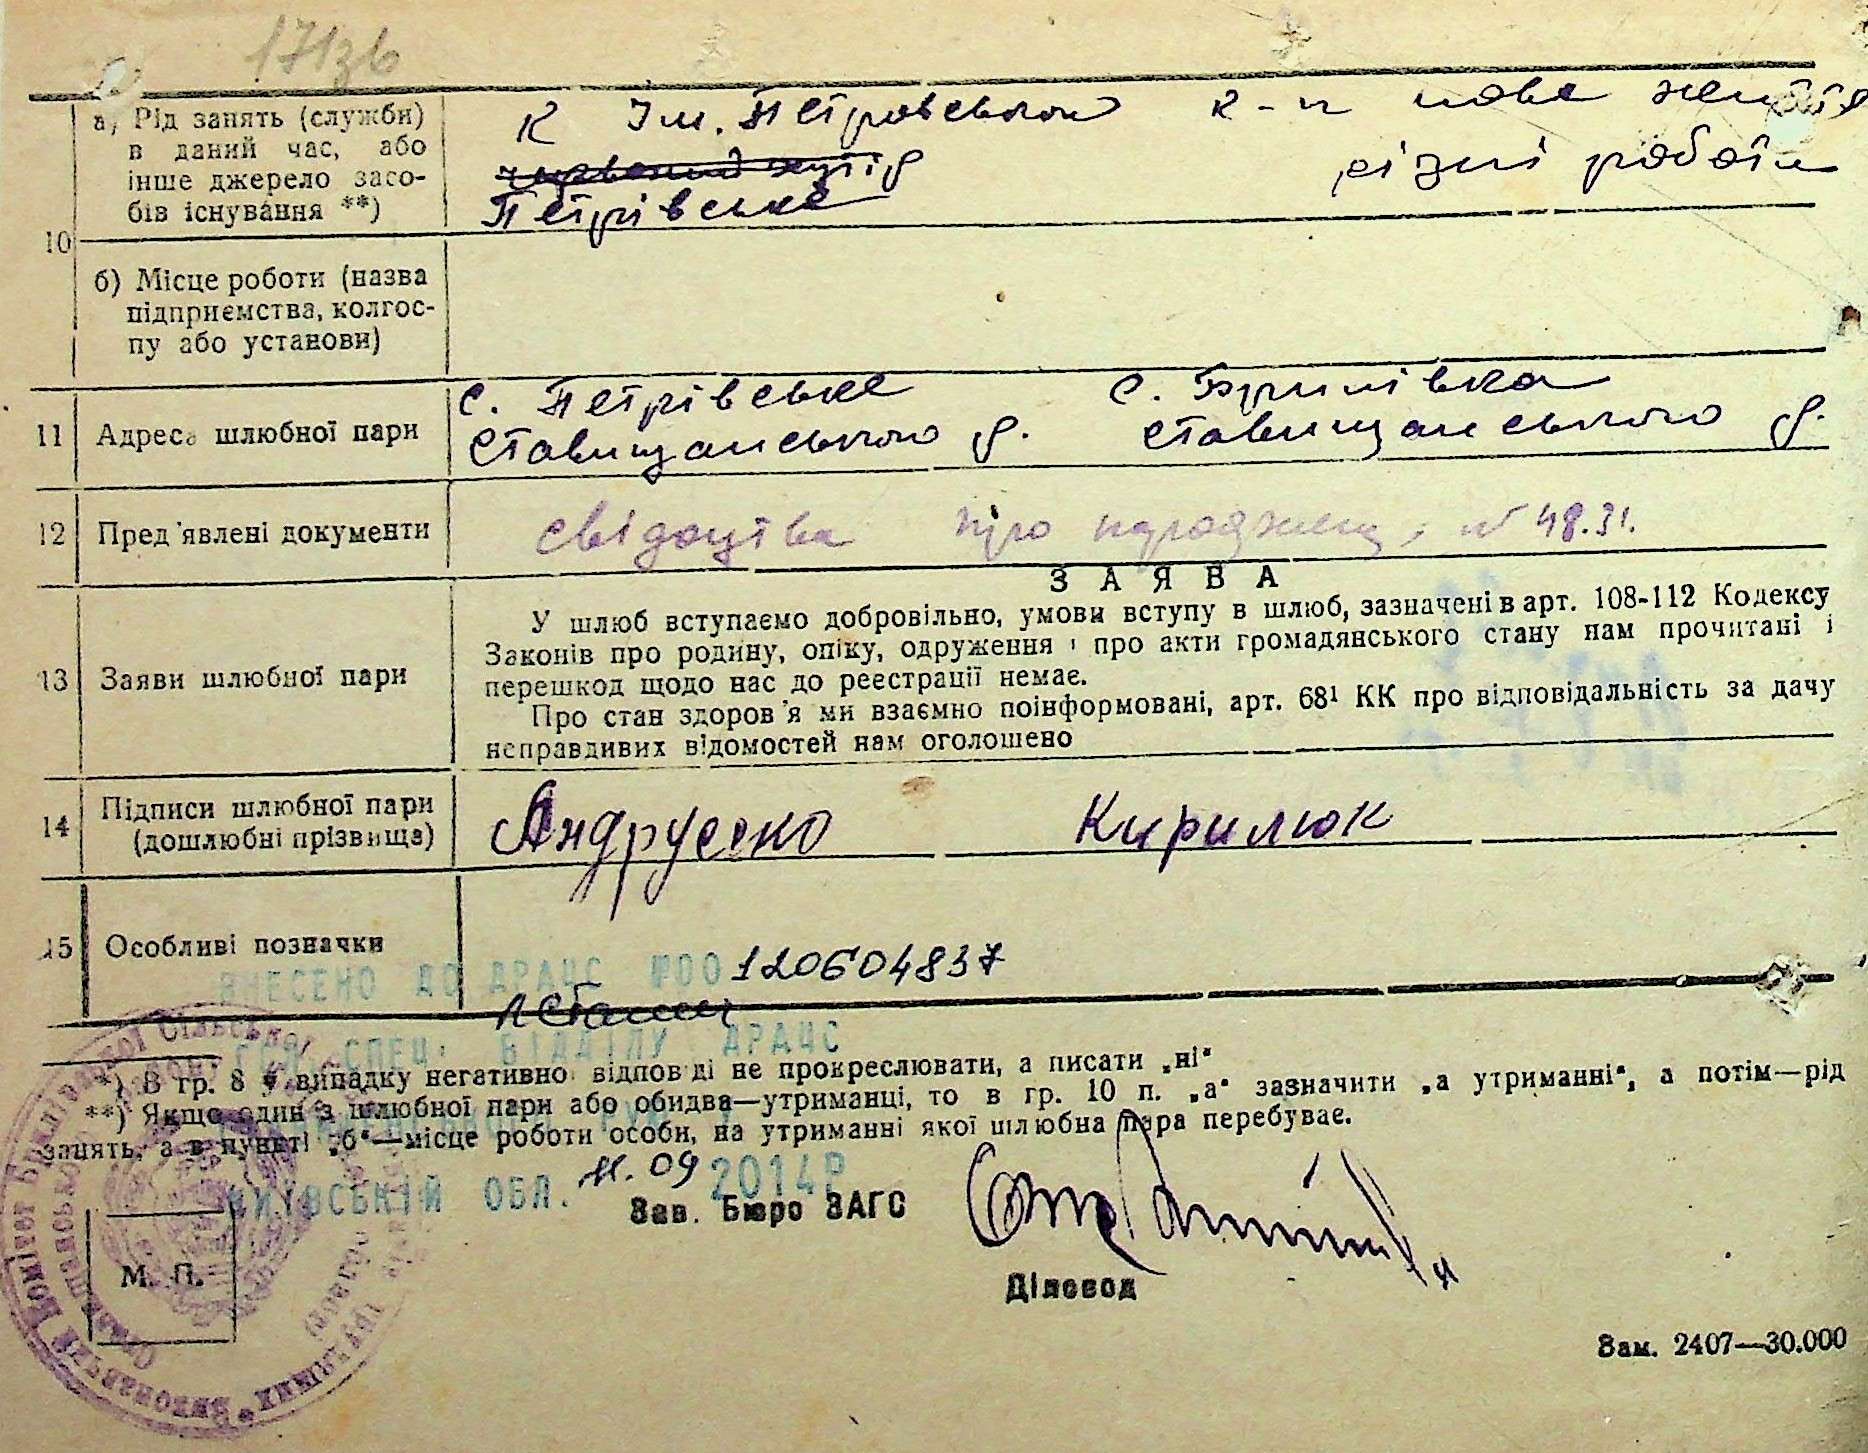 171зв
10
а) Рід занять (служби)
в даний час, або
інше джерело засо-
бів існування **)
К Ім. Петровського
Петрівське
к-п нове життя
різні роботи
б) Місце роботи (назва
підприємства, колгос-
пу або установи)
11 Адреса шлюбної пари
с. Петрівське
Ставищанського р.
с. Бримівка
Ставищанського р.
12 Пред'явлені документи
свідоцтва про народжен, № 48.31.
13 Заяви шлюбної пари
ЗАЯВА
У шлюб вступаємо добровільно, умови вступу в шлюб, зазначені в арт. 108-112 Кодексу
Законів про родину, опіку, одруження і про акти громадянського стану нам прочитані і
перешкод щодо нас до реєстрації немає.
Про стан здоров'я ми взаємно поінформовані, арт. 68¹ КК про відповідальність за дачу
неправдивих відомостей нам оголошено
14 Підписи шлюбної пари
(дошлюбні прізвища)
Андрусенко
Кирилюк
15 Особливі позначки
ВНЕСЕНО ДО ДРАЦС №00120604837
ГОЛ. СПЕЦ. ВІДДІЛУ ДРАЦС
*) В гр. 8 у випадку негативної відповіді не прокреслювати, а писати „ні“
**) Якщо один з шлюбної пари або обидва—утриманці, то в гр. 10 п. „а“ зазначити „а утриманні“, а потім—рід
занять, а в пункті „б“—місце роботи особи, на утриманні якої шлюбна пара перебуває.
КИЇВСЬКІЙ ОБЛ. 11.09 2014Р
Зав. Бюро ЗАГС
Діловод
М. П.
Зам. 2407—30.000